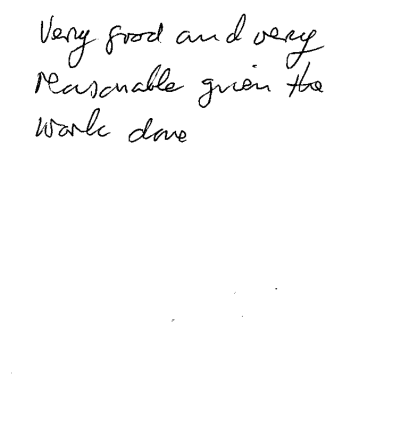 Very good and very
reasonable given the
work done